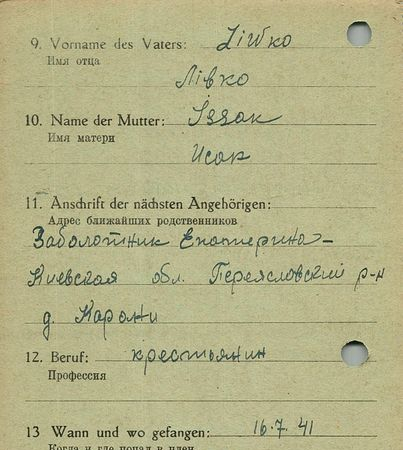 9. Vorname des Vaters: Liwko
Имя отца
Лівко
10. Name der Mutter: Issak
Имя матери
Исак
11. Anschrift der nächsten Angehörigen:
Адрес ближайших родственников
Заболотник Екатерина–
Киевская обл. Переясловский р-н
д. Карани
12. Beruf: крестьянин
Профессия
13 Wann und wo gefangen: 16.7.41
Когда и где попал в плен